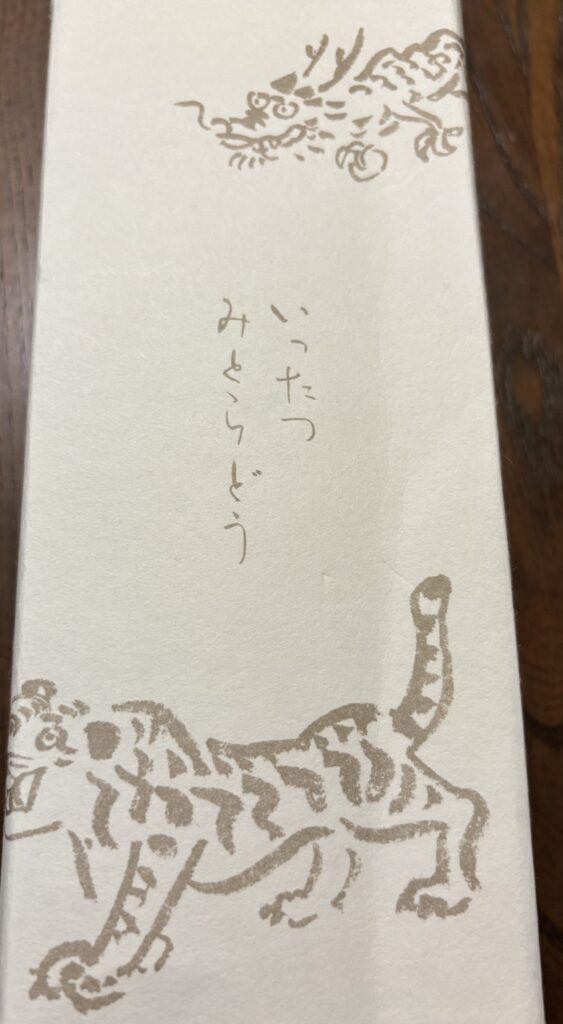 いったつ
みとらどう